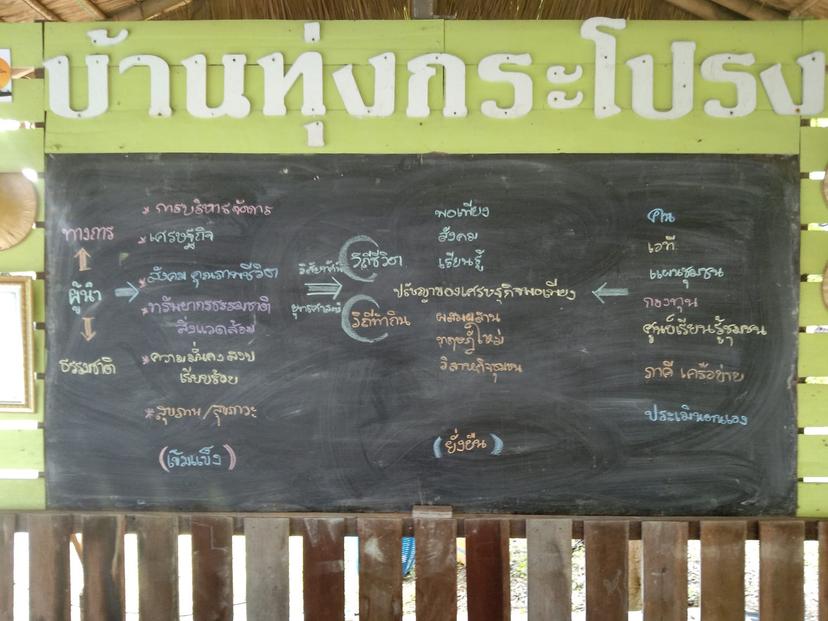 บ้านทุ่งกระโปรง
ทางการ
ผู้นำ
ธรรมชาติ
* การบริหารจัดการ
* เศรษฐกิจ
* สังคม คุณภาพชีวิต
* ทรัพยากรธรรมชาติ
สิ่งแวดล้อม
* ความมั่นคง สงบ
เรียบร้อย
* สุขภาพ/สุขภาวะ
(เข้มแข็ง)
วิสัยทัศน์
ยุทธศาสตร์
วิถีชีวิต
วิถีทำกิน
พอเพียง
สังคม
เรียนรู้
ปรัชญาของเศรษฐกิจพอเพียง
ผสมผสาน
ทฤษฎีใหม่
วิสาหกิจชุมชน
(ยั่งยืน)
คน
เวที
แผนชุมชน
กองทุน
ศูนย์เรียนรู้ชุมชน
ภาคี เครือข่าย
ประเมินตนเอง